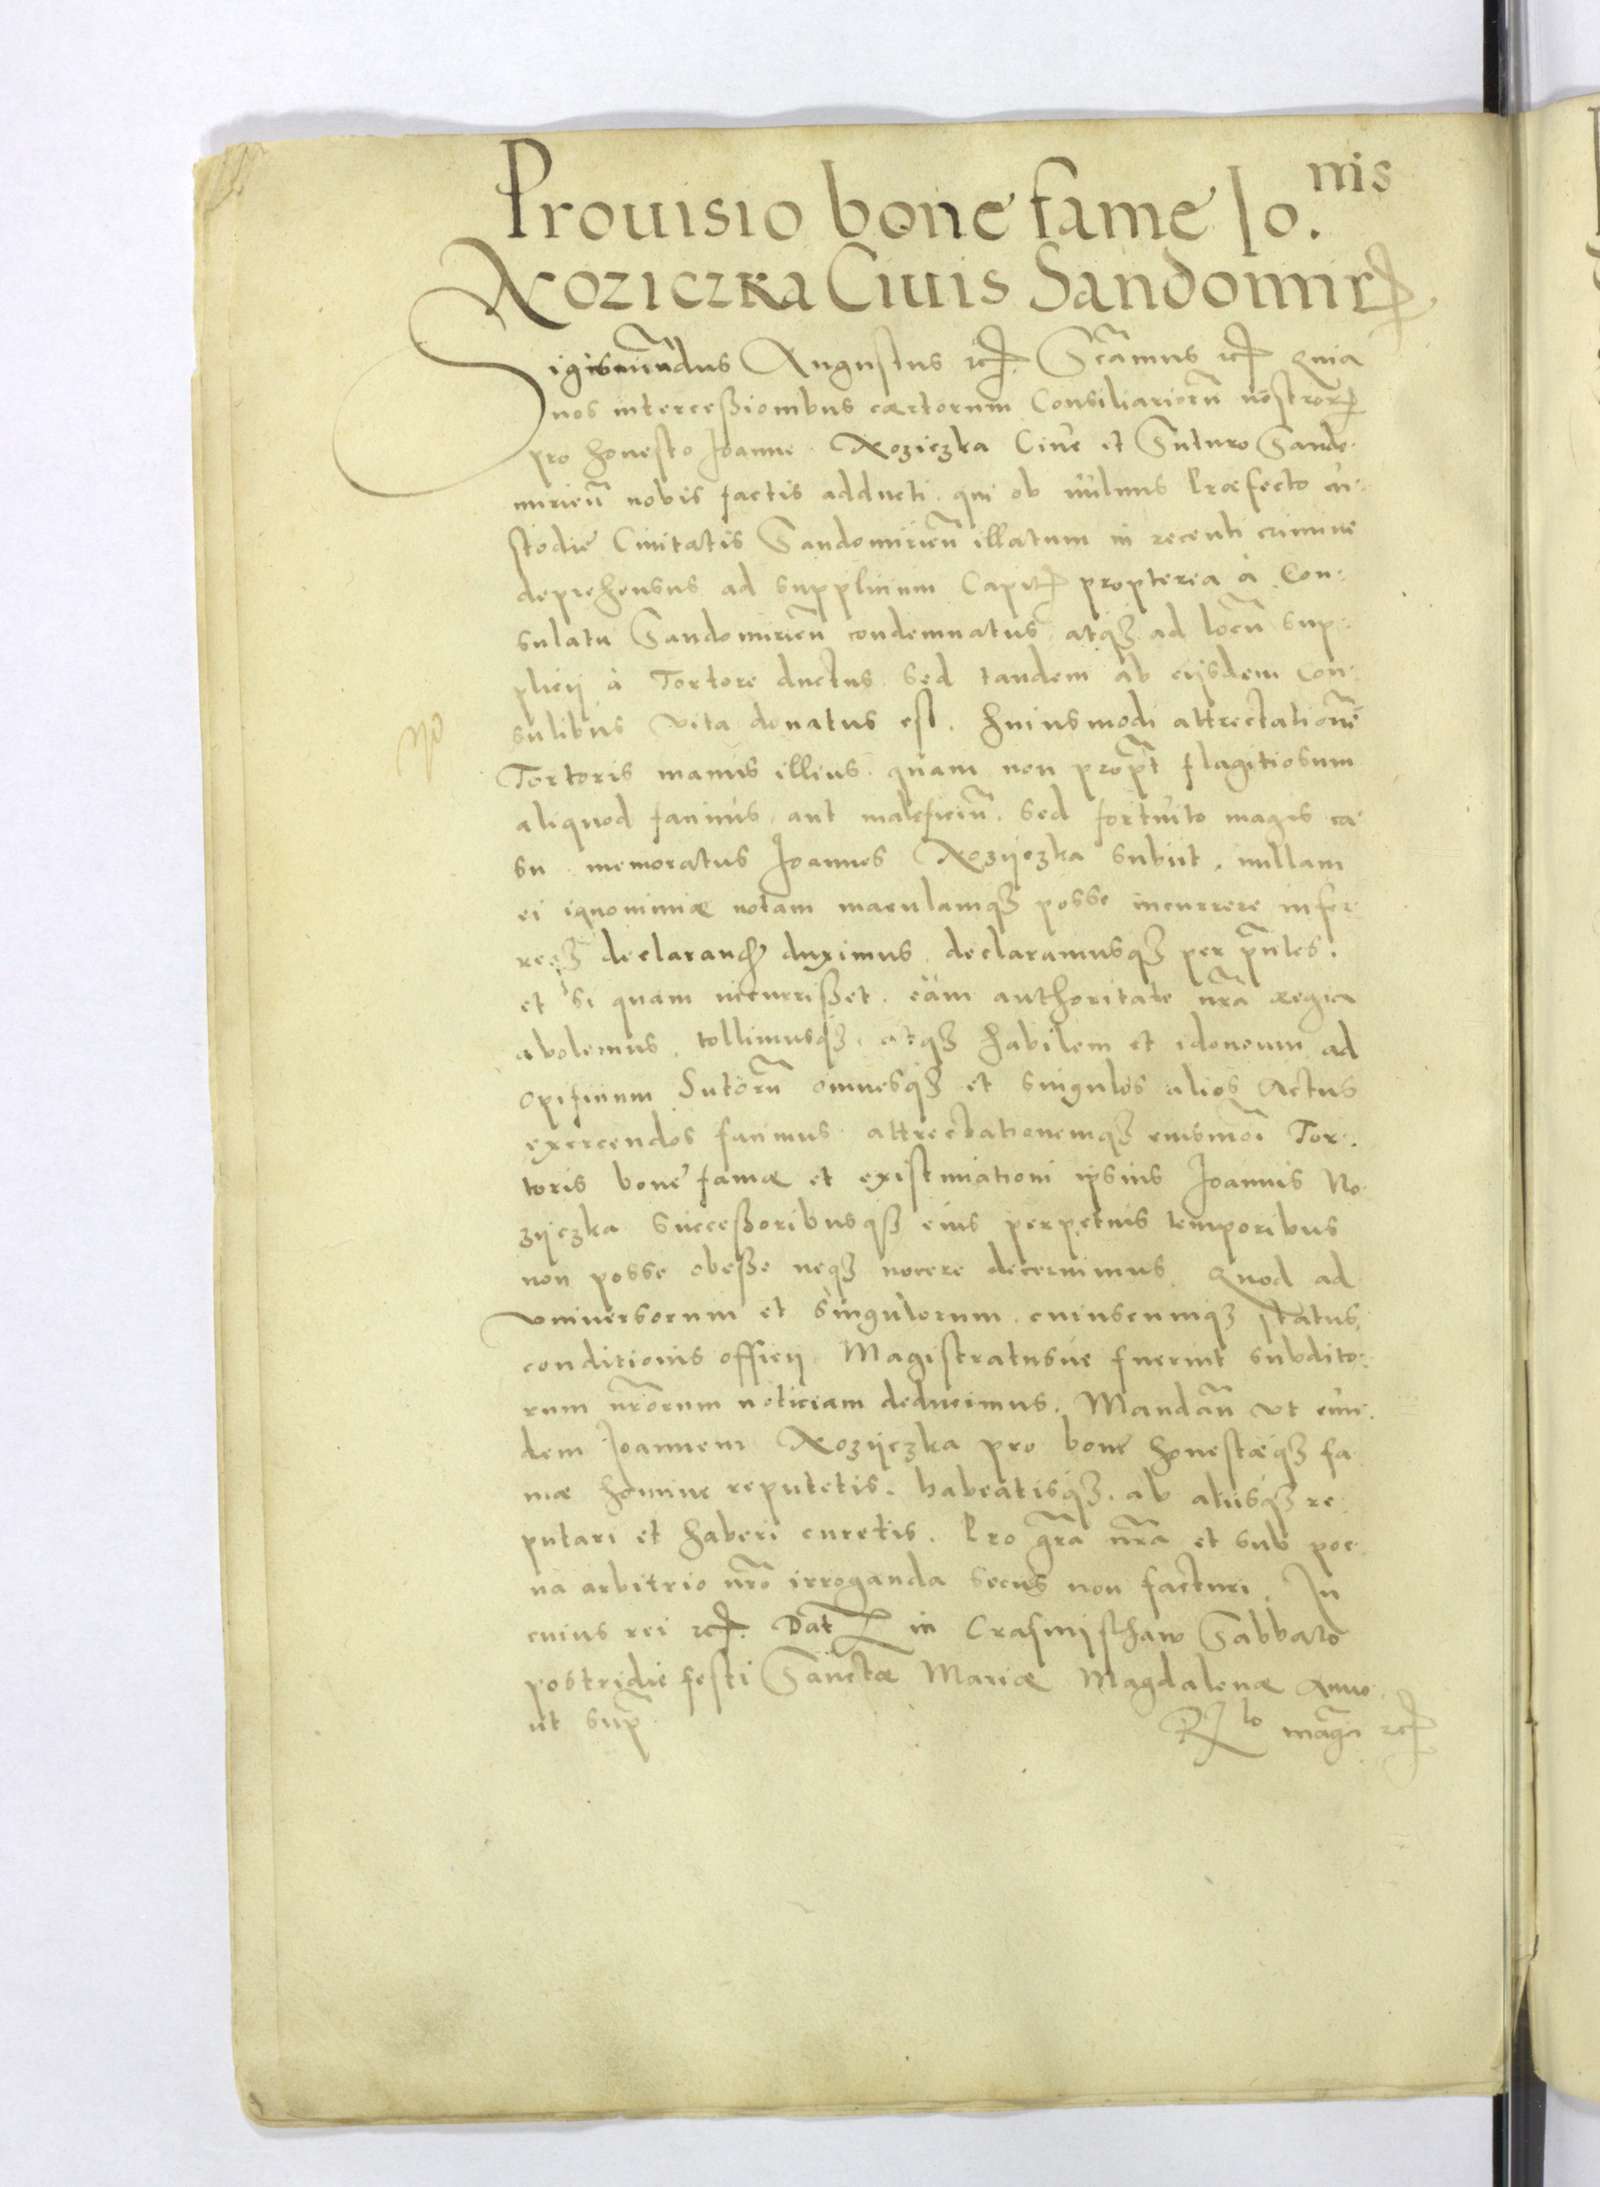 Prouisio bone fame Jo.nis
Noziczka Ciuis Sandomir
Sigismūdus Augustus etc. Scāmus etc. Quia
nos intercessionibus cærtorum Consiliariorū nostror
pro honesto Joanne Noziczka Ciue et Suturo Sande-
mirieñ nobis factis adducti. qui ob uulnus Præfecto cu-
stodie Ciuitatis Sandomirieñ illatum in recenti crimine
deprehensus ad supplicium Capit propterea à Con-
sulatu Sandomirieñ condemnatus, atq3 ad locū sup-
plicij à Tortore ductus sed tandem ab eijsdem Con-
sulibus vita donatus est. huiusmodi attrectationē
Tortoris manus illius quam non propt flagitiosum
aliquod facinus, aut maleficiū, sed fortuito magis ca-
su memoratus Joannes Nozijczka subijt, nullam
ei ignominiæ notam maculamq3 posse incurrere infer-
req3 declarand duximus, declaramusq3 per pñtes.
et si quam incurrisset, eam authoritate nrã regia
abolemus, tollimusq3, atq3 habilem et idoneum ad
opificium Sutorū omnesq3 et singulos alios Actus
exercendos facimus attrectationemq3 eiusmōi Tor-
toris bone famæ et existimationi ipsius Joannis No-
zijczka successoribusq3 eius perpetuis temporibus
non posse obesse neq3 nocere decernimus. Quod ad
vniuersorum et singulorum cuiuscunq3 status,
conditionis officij Magistratusue fuerint subdito-
rum nrōrum noticiam deducimus. Mandañ vt eun-
dem Joannem Nozijczka pro bone honestæq3 fa-
mæ homine reputetis, habeatisq3, ab alijsq3 re-
putari et haberi curetis. Pro grã nrã et sub poe-
na arbitrio nrō irroganda secus non facturi. In
cuius rei etc. Dat in Crasnisthaw Sabbato
postridie festi Sanctæ Mariæ Magdalenæ Anno
ut sup
Rlo magci etc